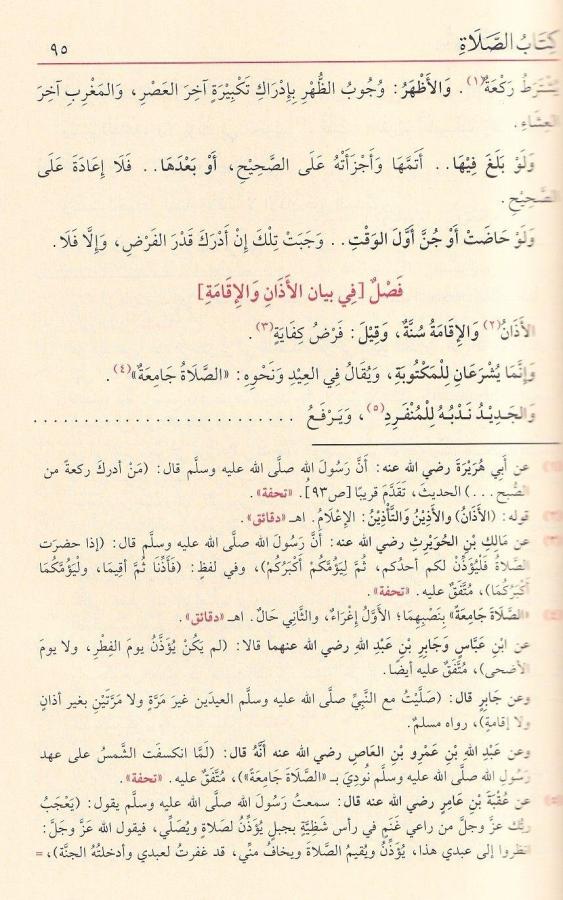 كِتَابُ الصَّلَاةِ ٩٥
يُشْتَرَطُ رَكْعَةٌ(١). وَالأَظْهَرُ: وُجُوبُ الظُّهْرِ بِإِدْرَاكِ تَكْبِيْرَةٍ آخِرَ العَصْرِ، وَالمَغْرِبِ آخِرَ
العِشَاءِ.
وَلَوْ بَلَغَ فِيْهَا.. أَتَمَّهَا وَأَجْزَأَتْهُ عَلَى الصَّحِيْحِ، أَوْ بَعْدَهَا.. فَلَا إِعَادَةَ عَلَى
الصَّحِيْحِ.
وَلَوْ حَاضَتْ أَوْ جُنَّ أَوَّلَ الوَقْتِ.. وَجَبَتْ تِلْكَ إِنْ أَدْرَكَ قَدْرَ الفَرْضِ، وَإِلَّا فَلَا.
فَصْلٌ [فِي بيان الأَذَانِ وَالإِقَامَةِ]
الأَذَانُ(٢) وَالإِقَامَةُ سُنَّةٌ، وَقِيْلَ: فَرْضُ كِفَايَةٍ(٣).
وَإِنَّمَا يُشْرَعَانِ لِلْمَكْتُوبَةِ، وَيُقَالُ فِي العِيْدِ وَنَحْوِهِ: «الصَّلَاةُ جَامِعَةٌ»(٤).
وَالجَدِيْدُ نَدْبُهُ لِلْمُنْفَرِدِ(٥)، وَيَرْفَعُ ..........................
عن أَبِي هُرَيْرَةَ رضي الله عنه: أَنَّ رَسُولَ اللهِ صلَّى الله عليه وسلَّم قال: (مَنْ أدركَ ركعةً من
الصُّبحِ...) الحديثَ، تَقَدَّمَ قريبًا [ص٩٣]. «تحفة».
(٢) قوله: (الأَذَانُ) والأَذِيْنُ وَالتَّأْذِيْنُ: الإِعْلَامُ. اهـ «دقائق».
(٣) عن مَالِكِ بْنِ الحُوَيْرِثِ رضي الله عنه: أَنَّ رَسُولَ اللهِ صلَّى الله عليه وسلَّم قال: (إذا حضرَت
الصَّلاةُ فَلْيُؤَذِّنْ لكم أحدُكم، ثُمَّ لِيَؤُمَّكُمْ أَكْبَرُكُمْ)، وفي لفظٍ: (فَأَذِّنَا ثُمَّ أَقِيمَا، ولْيَؤُمَّكُمَا
أَكْبَرُكُمَا)، مُتَّفَقٌ عليه. «تحفة».
(٤) «الصَّلَاةَ جَامِعَةً» بِنَصْبِهِمَا؛ الأَوَّلُ إِغْرَاءٌ، والثَّانِي حَالٌ. اهـ «دقائق».
عن ابْنِ عَبَّاسٍ وَجَابِرِ بْنِ عَبْدِ اللهِ رضي الله عنهما قالا: (لم يَكُنْ يُؤَذَّنُ يومَ الفِطْرِ، ولا يومَ
الأضحى)، مُتَّفَقٌ عليه أيضًا.
وعن جَابِرٍ قال: (صَلَّيْتُ مع النَّبيِّ صلَّى الله عليه وسلَّم العيدَين غيرَ مَرَّةٍ ولا مَرَّتَيْنِ بغير أذانٍ
ولا إقامةٍ)، رواه مسلمٌ.
وعن عَبْدِ اللهِ بْنِ عَمْرِو بْنِ العَاصِ رضي الله عنه أَنَّهُ قال: (لَمَّا انكسفَت الشَّمسُ على عهدِ
رَسُولِ اللهِ صلَّى الله عليه وسلَّم نُودِيَ بـ «الصَّلَاةَ جَامِعَةً»)، مُتَّفَقٌ عليه. «تحفة».
(٥) عن عُقْبَةَ بْنِ عَامِرٍ رضي الله عنه قال: سمعتُ رَسُولَ اللهِ صلَّى الله عليه وسلَّم يقول: (يَعْجَبُ
ربُّك عزَّ وجلَّ من راعي غَنَمٍ في رأس شَظِيَّةٍ بجبلٍ يُؤَذِّنُ لصلاةٍ ويُصَلِّي، فيقول الله عزَّ وجلَّ:
انظروا إلى عبدي هذا، يُؤَذِّنُ ويُقيمُ الصَّلاةَ ويخافُ منِّي، قد غفرتُ لعبدي وأدخلتُهُ الجنَّةَ)، =